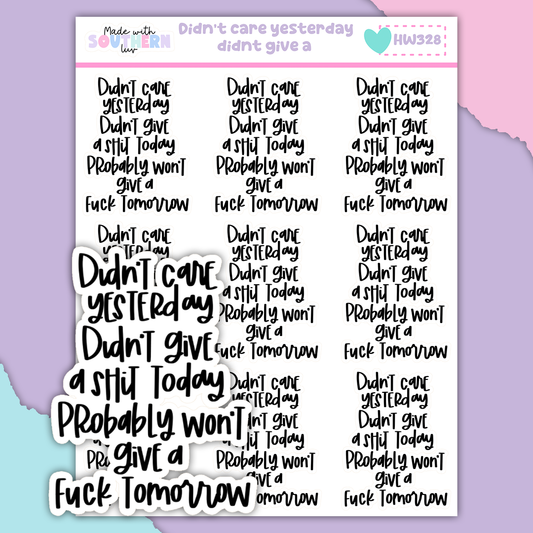 Made with
SOUTHERN
luv
Didn't care yesterday
didnt give a
HW328
Didn't care
yesterday
Didn't give
a shit Today
Probably won't
give a
Fuck Tomorrow
Didn't care
yesterday
Didn't give
a shit Today
Probably won't
give a
Fuck Tomorrow
Didn't care
yesterday
Didn't give
a shit Today
Probably won't
give a
Fuck Tomorrow
Didn't care
yesterday
Didn't care
yesterday
Didn't give
a shit Today
Probably won't
give a
Fuck Tomorrow
Didn't care
yesterday
Didn't give
a shit Today
Probably won't
give a
Fuck Tomorrow
Didn't care
yesterday
Didn't give
a shit Today
Probably won't
give a
Fuck Tomorrow
Didn't care
yesterday
Didn't give
a shit Today
Probably won't
give a
Tomorrow
Didn't care
yesterday
Didn't give
a shit Today
Probably won't
give a
Fuck Tomorrow